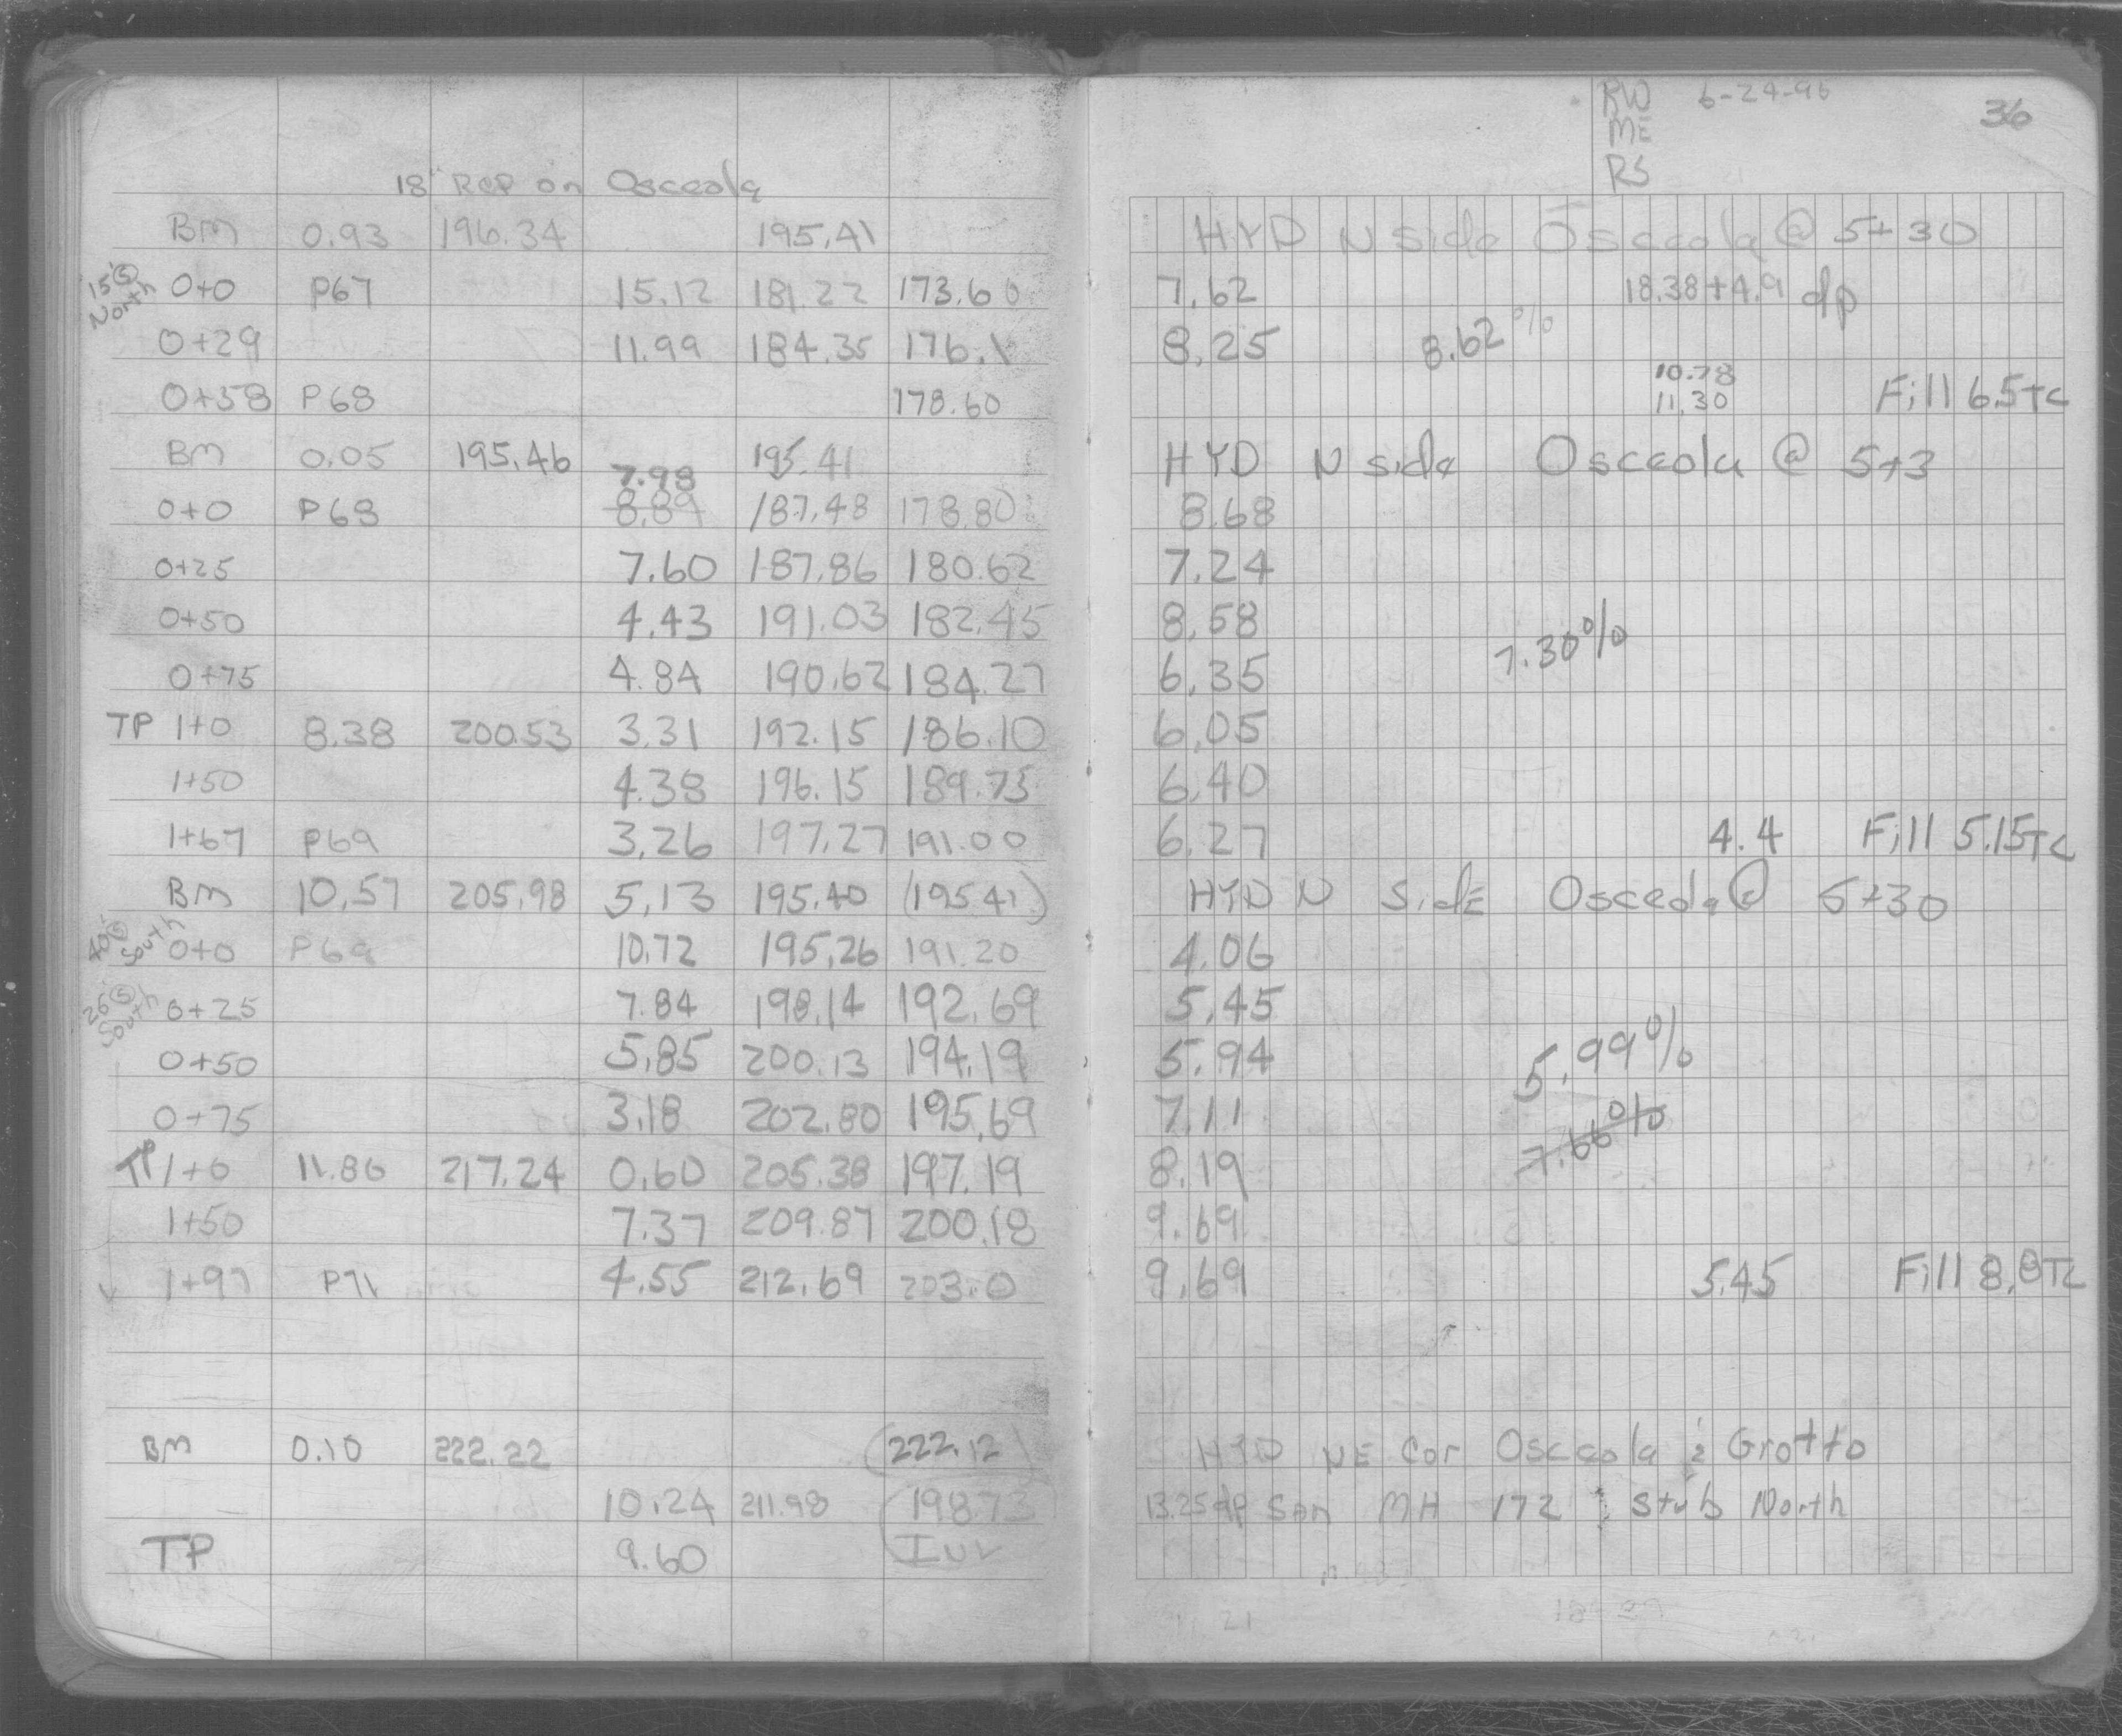 18" RCP on Osceola
BM 0.93 196.34 195.41
15' North 0+0 P67 15.12 181.22 173.60
0+29 11.99 184.35 176.1
0+58 P68 178.60
BM 0.05 195.46 195.41
7.98
0+0 P68 8.89 187.48 178.80
0+25 7.60 187.86 180.62
0+50 4.43 191.03 182.45
0+75 4.84 190.62 184.27
TP 1+0 8.38 200.53 3.31 192.15 186.10
1+50 4.38 196.15 189.75
1+67 P69 3.26 197.27 191.00
BM 10.57 205.98 5.13 195.40 (195.41)
40' South 0+0 P69 10.72 195.26 191.20
26' South 0+25 7.84 198.14 192.69
0+50 5.85 200.13 194.19
0+75 3.18 202.80 195.69
TP 1+0 11.86 217.24 0.60 205.38 197.19
1+50 7.37 209.87 200.18
1+97 P71 4.55 212.69 203.0
BM 0.10 222.22 (222.12)
10.24 211.98 (198.73
TP 9.60 Inv
RW 6-24-96 36
ME
RS
HYD N side Osceola @ 5+30
7.62 18.38+4.9 dp
8.25 8.62%
10.78
11.30 Fill 6.5TC
HYD N side Osceola @ 5+3
8.68
7.24
8.58
7.30%
6.35
6.05
6.40
6.27 4.4 Fill 5.15TC
HYD N SidE Osceola @ 5+30
4.06
5.45
5.94 5.99%
7.11 7.66%
8.19
9.69
9.69 5.45 Fill 8.8TC
HYD NE Cor Osceola & Grotto
13.25dp San MH 172 Stub North